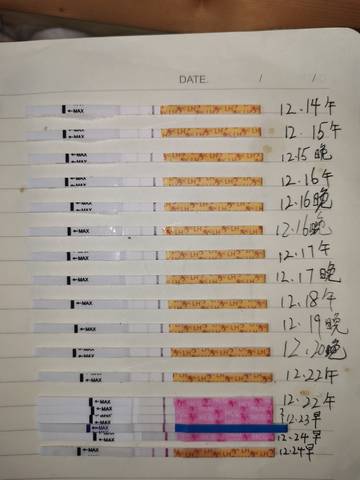 DATE. / /
←MAX LH 12.14午
←MAX LH 12.15午
←MAX LH 12.15晚
←MAX LH 12.16午
←MAX LH 12.16晚
←MAX LH 12.16晚
←MAX LH 12.17午
←MAX LH 12.17晚
←MAX LH 12.18午
←MAX LH 12.19晚
←MAX LH 12.20晚
←MAX LH 12.22午
←MAX 12.22午
←MAX
←MAX 12.23早
←MAX
←MAX 12.24早
←MAX LH 12.24早